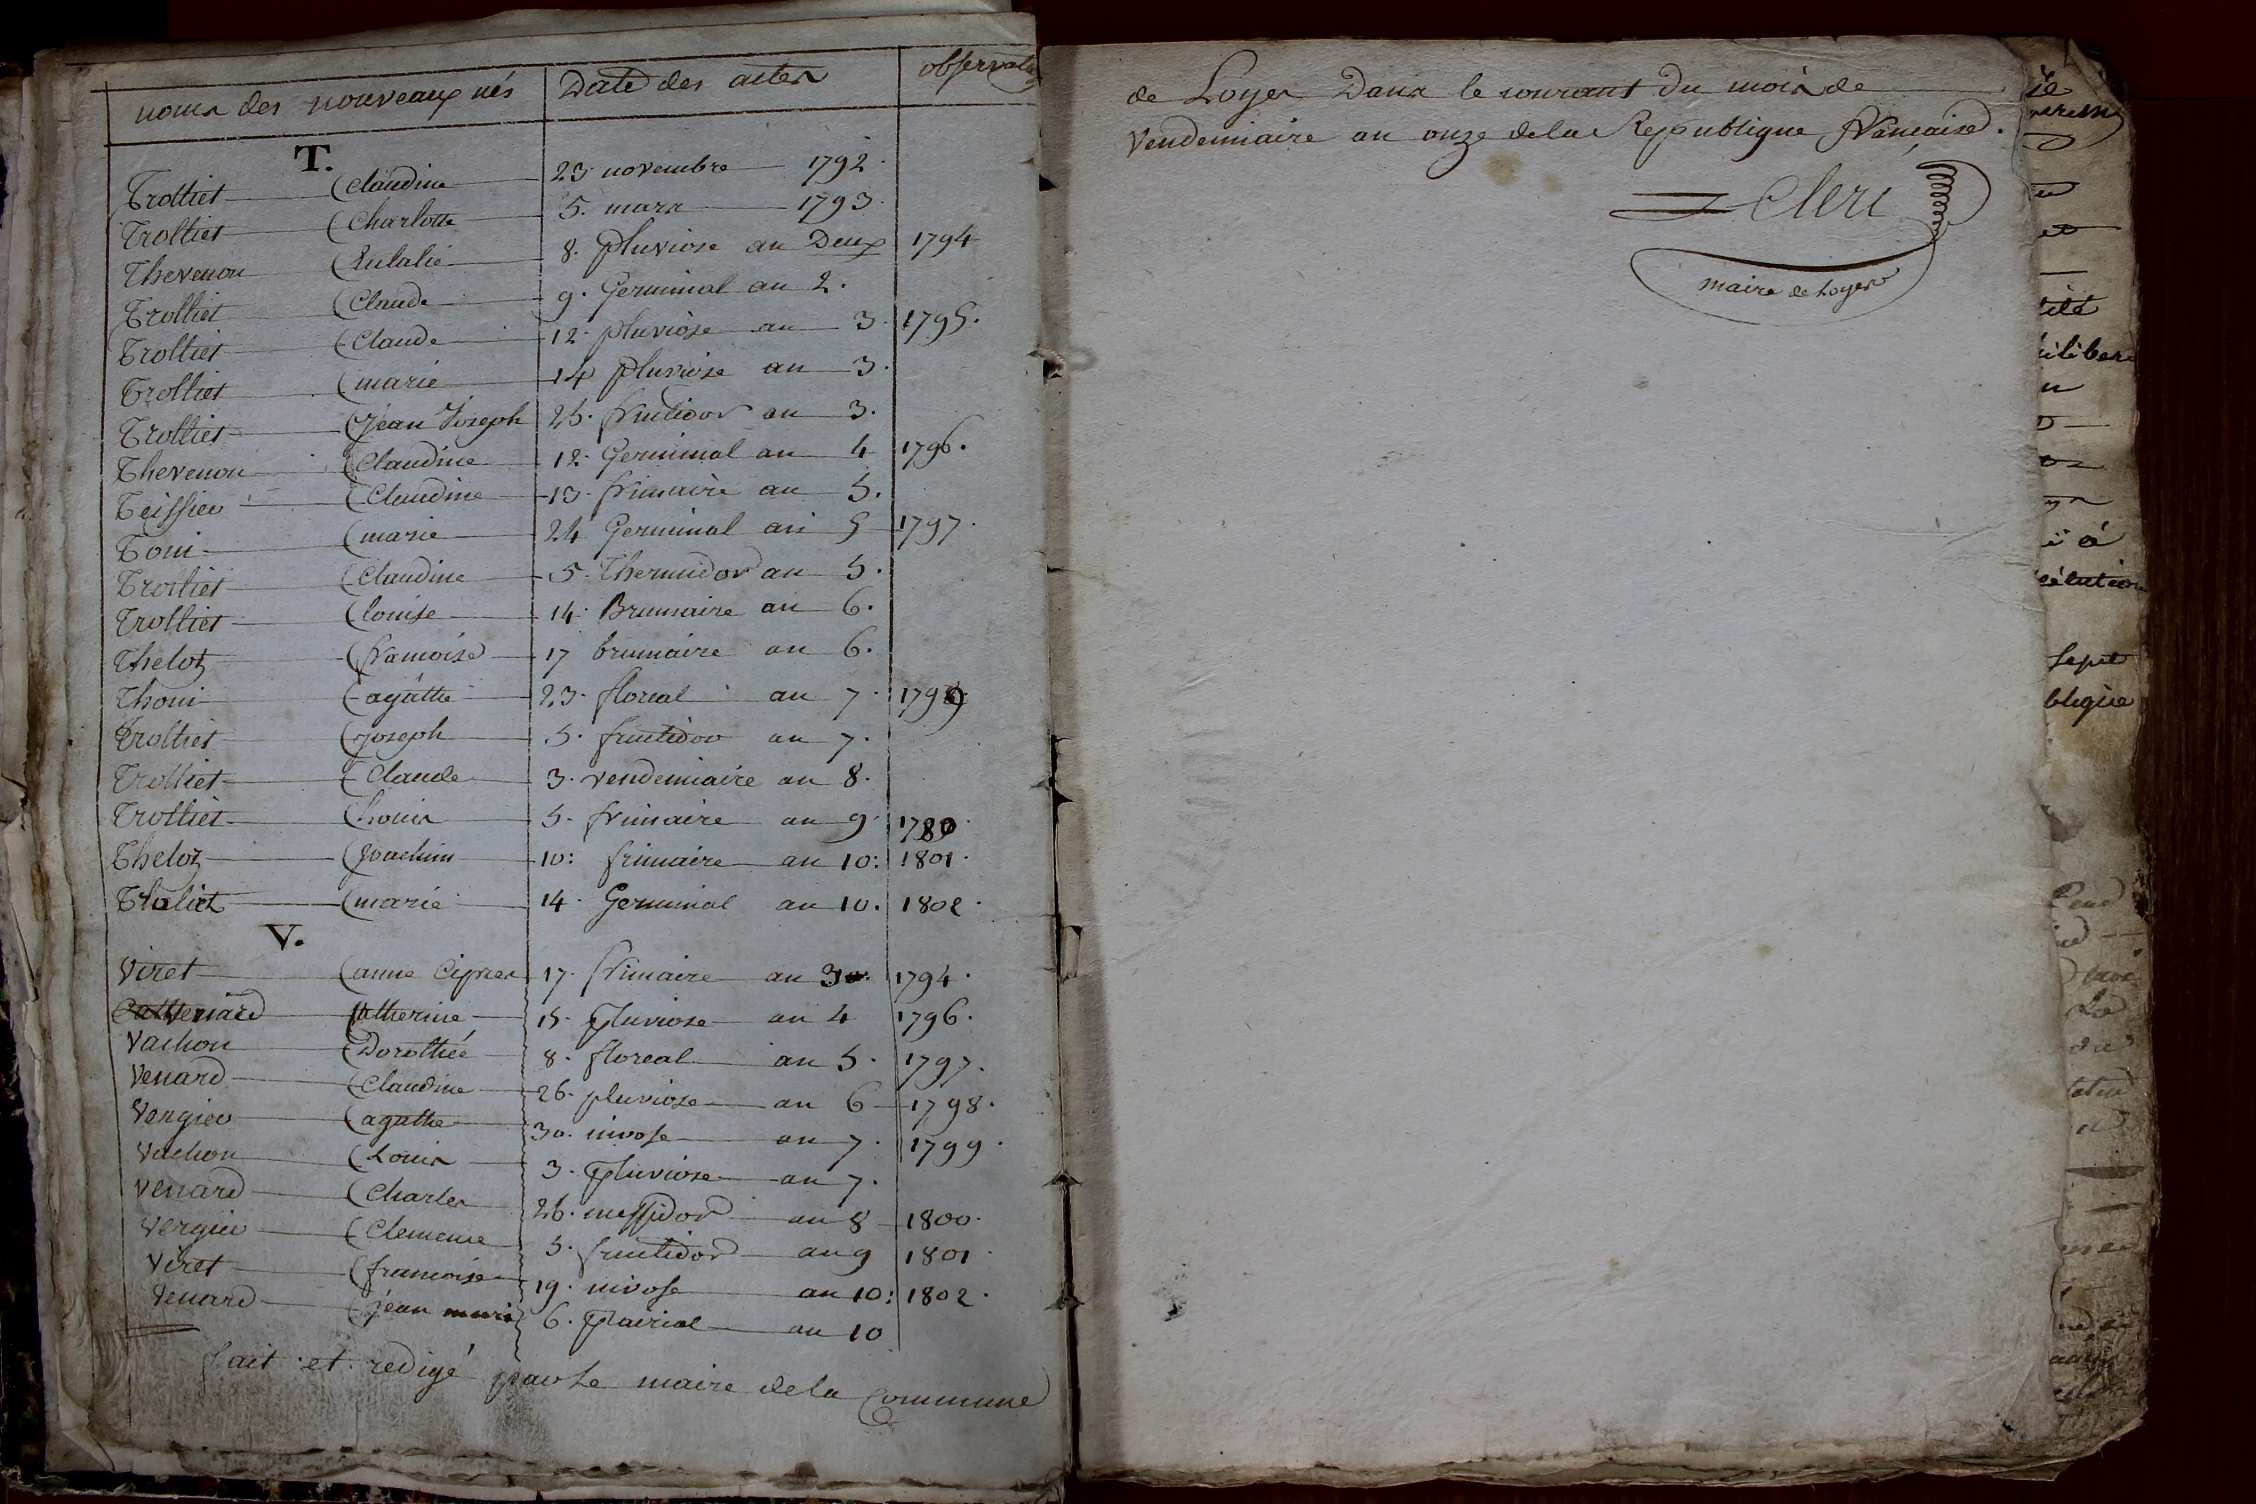 noms des nouveaux nés Date des actes observati
T.
Trolliet Claudine 23 novembre 1792.
Trolliet Charlotte 5. mars 1793.
Thevenon Eulalie 8. pluviose an Deux 1794
Trolliet Claude 9. Germinal an 2.
Trolliet Claude 12. pluviose an 3. 1795.
Trolliet marie 14 pluviose an 3.
Trolliet Jean Joseph 25. fructidor an 3.
Thevenon Claudine 12. Germinal an 4 1796.
Teissier Claudine 13. frimaire an 5.
Toni marie 24 Germinal an 5 1797.
Trolliet Claudine 5. Thermidor an 5.
Trolliet louise 14. Brumaire an 6.
Theloz francoise 17 brumaire an 6.
Thoni agathe 23. floreal an 7. 1799
Trolliet Joseph 5. fructidor an 7.
Trolliet Claude 3. vendemiaire an 8.
Trolliet Louis 5. frimaire an 9.
Theloz Joachim 10: frimaire an 10: 1801.
marie 14. Germinal an 10. 1802.
V.
Viret anne 17. frimaire an 3 1794.
Catherine 15. pluviose an 4 1796.
Vachon Dorothée 8. floreal an 5. 1797.
Venard Claudine 26. pluviose an 6 1798.
Vergier agathe 30. nivose an 7. 1799.
Vachon Louis 3. pluviose an 7.
Venard Charles 26. messidor an 8 1800.
Vergier Clemence 5. fructidor an 9 1801
Viret francoise 19. nivose an 10: 1802.
Venard jean mari 6. prairial an 10
fait et redigé par le maire de la Commune
de Loyes Dans le courant Du mois de
Vendemiaire an onze de la Republique francaise.
Cleri
maire de Loyes
tité
sept
blique